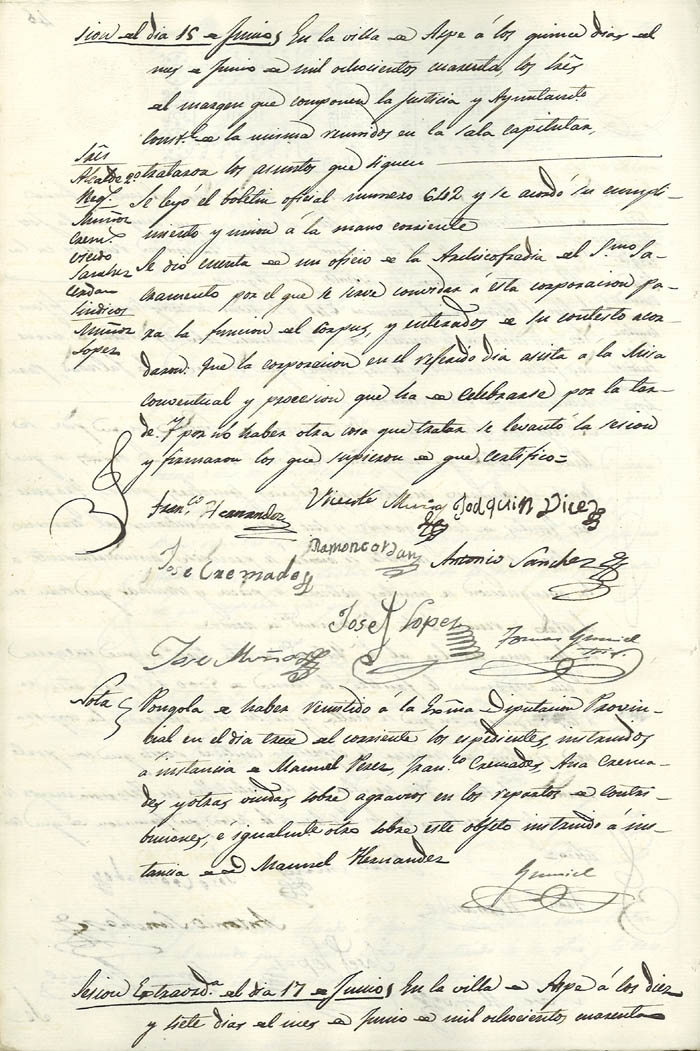 sion del dia 15 de Junio, En la villa de Aspe á los quince dias del
mes de Junio de mil ochocientos cuarenta, los Srês
al margen que componen la Justicia y Ayuntamto
Constl. de la misma reunidos en la sala capitular,
trataron los asuntos que siguen
Srês
Alcalde 2º
Regs.
Muñoz
Crems.
Sanchez
Cerdan
Sindicos
Muñoz
Lopez
Se leyó el boletin oficial numero 642 y se acordó su cumpli-
miento y union á la mano corriente
Se dio cuenta de un oficio de la Archicofradia del S.mo Sa-
cramento por el que se sirve convidar á esta corporacion pa-
ra la funcion del Corpus, y enterados de su contesto acor-
daron: Que la corporacion en el referido dia asista á la Misa
conventual y procesion que ha de celebrarse por la tar-
de. Y por no haber otra cosa que tratar se levantó la sesion
y firmaron los que supieron de que certifico=
Fran.co Hernandez
Vicente Muñoz
Joaquin Diez
Jose Cremades
Ramon Cerdan
Antonio Sanchez
Jose Lopez
Tomas Gumiel
Srio.
Jose Muñoz
Nota
Pongola de haber remitido á la Exma Diputacion Provin-
cial en el dia trece del corriente los espedientes, instruidos
á instancia de Manuel Perez, Fran.co Cremades, Ana Crema-
des y otras viudas, sobre agravios en los repartos de contri-
buciones, é igualmente otro sobre este objeto instruido á ins-
tancia de Manuel Hernandez
Gumiel
Sesion Extraorda. del dia 17 de Junio, En la villa de Aspe á los diez
y siete dias del mes de Junio de mil ochocientos cuarenta